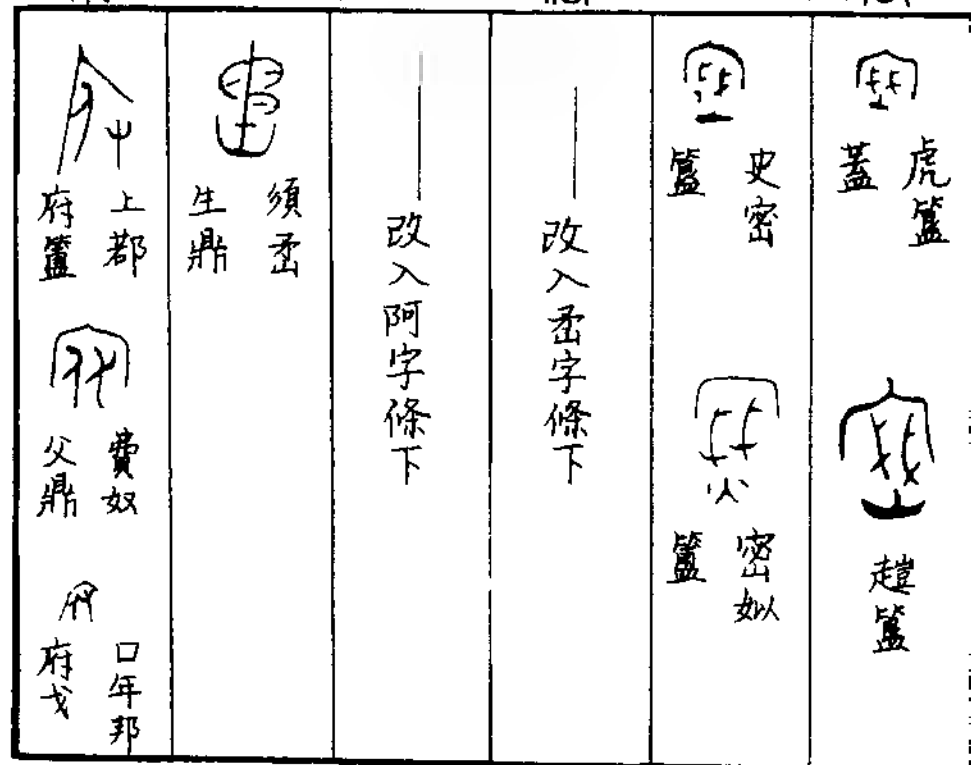 虎簋
蓋
趞簋
史密
簋
密姒
簠
改入字條下
改入阿字條下
須
生鼎
上都
府簠
費奴
父鼎
□年邦
府戈